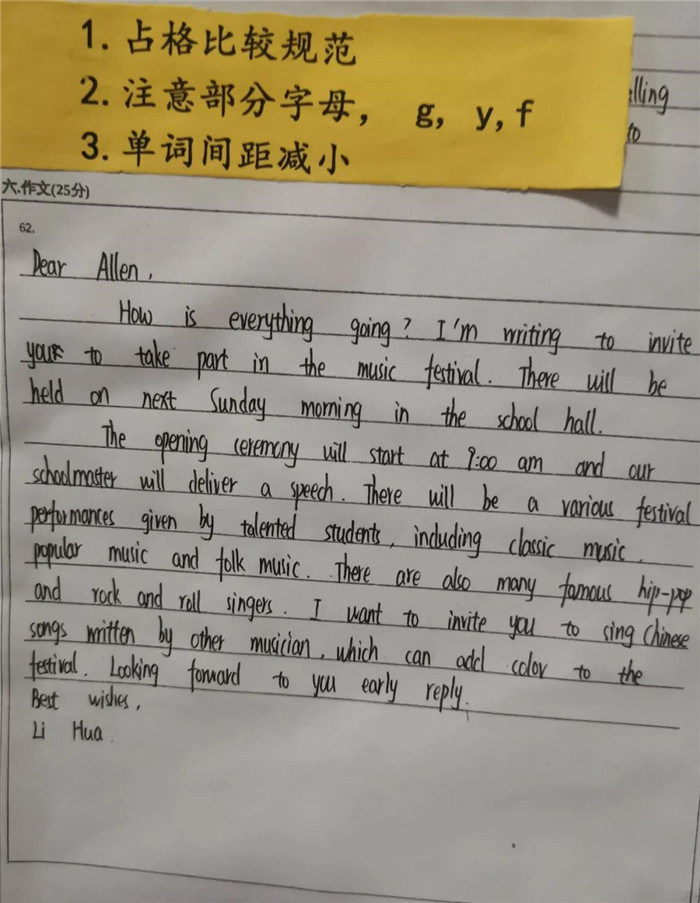 1. 占格比较规范
2. 注意部分字母， g, y, f
3. 单词间距减小
lling
to
六.作文(25分)
62.
Dear Allen,
How is everything going? I'm writing to invite
to take part in the music festival. There will be
held on next Sunday morning in the school hall.
The opening ceremony will start at 9:00 am and our
schoolmaster will deliver a speech. There will be a various festival
performances given by talented students, including classic music,
popular music and folk music. There are also many famous hip-pop
and rock and roll singers. I want to invite you to sing Chinese
songs written by other musician, which can add color to the
festival. Looking forward to you early reply.
Best wishes,
Li Hua.